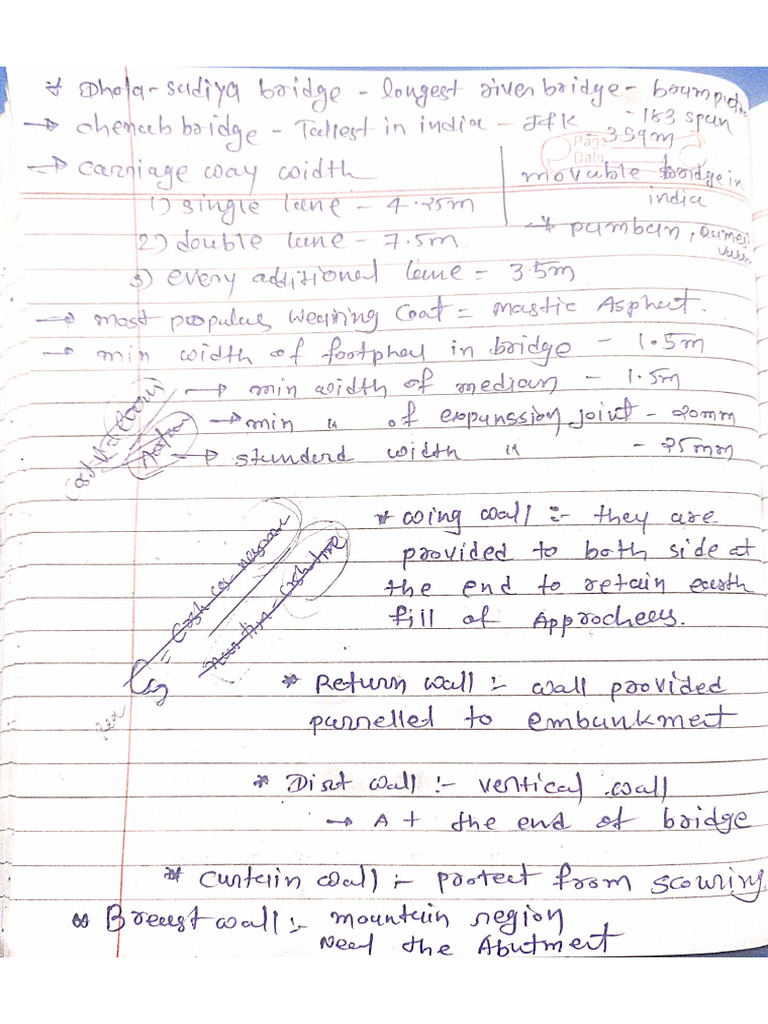 * Dhola-sadiya bridge - longest river bridge -
- 183 span
→ chenab bridge - Tallest in india - J&K - 359m
Page
Date
→ carriage way width
1) single lane - 4.25m
2) double lane - 7.5m
3) every additional lane = 3.5m
movable bridge in
india
→ pamban,
→ most populas wearing coat = mastic Asphalt.
→ min width of in bridge - 1.5m
→ min width of median - 1.5m
→ min " of expanssion joint - 20mm
→ standerd width " - 25mm
* wing wall :- they are
provided to both side at
the end to retain earth
fill of Approchees.
* Return wall :- wall provided
parrelled to embankment
* Dirt wall :- vertical wall
→ At the end of bridge
* curtain wall :- protect from scouring
** Breast wall :- mountain region
Near the Abutment